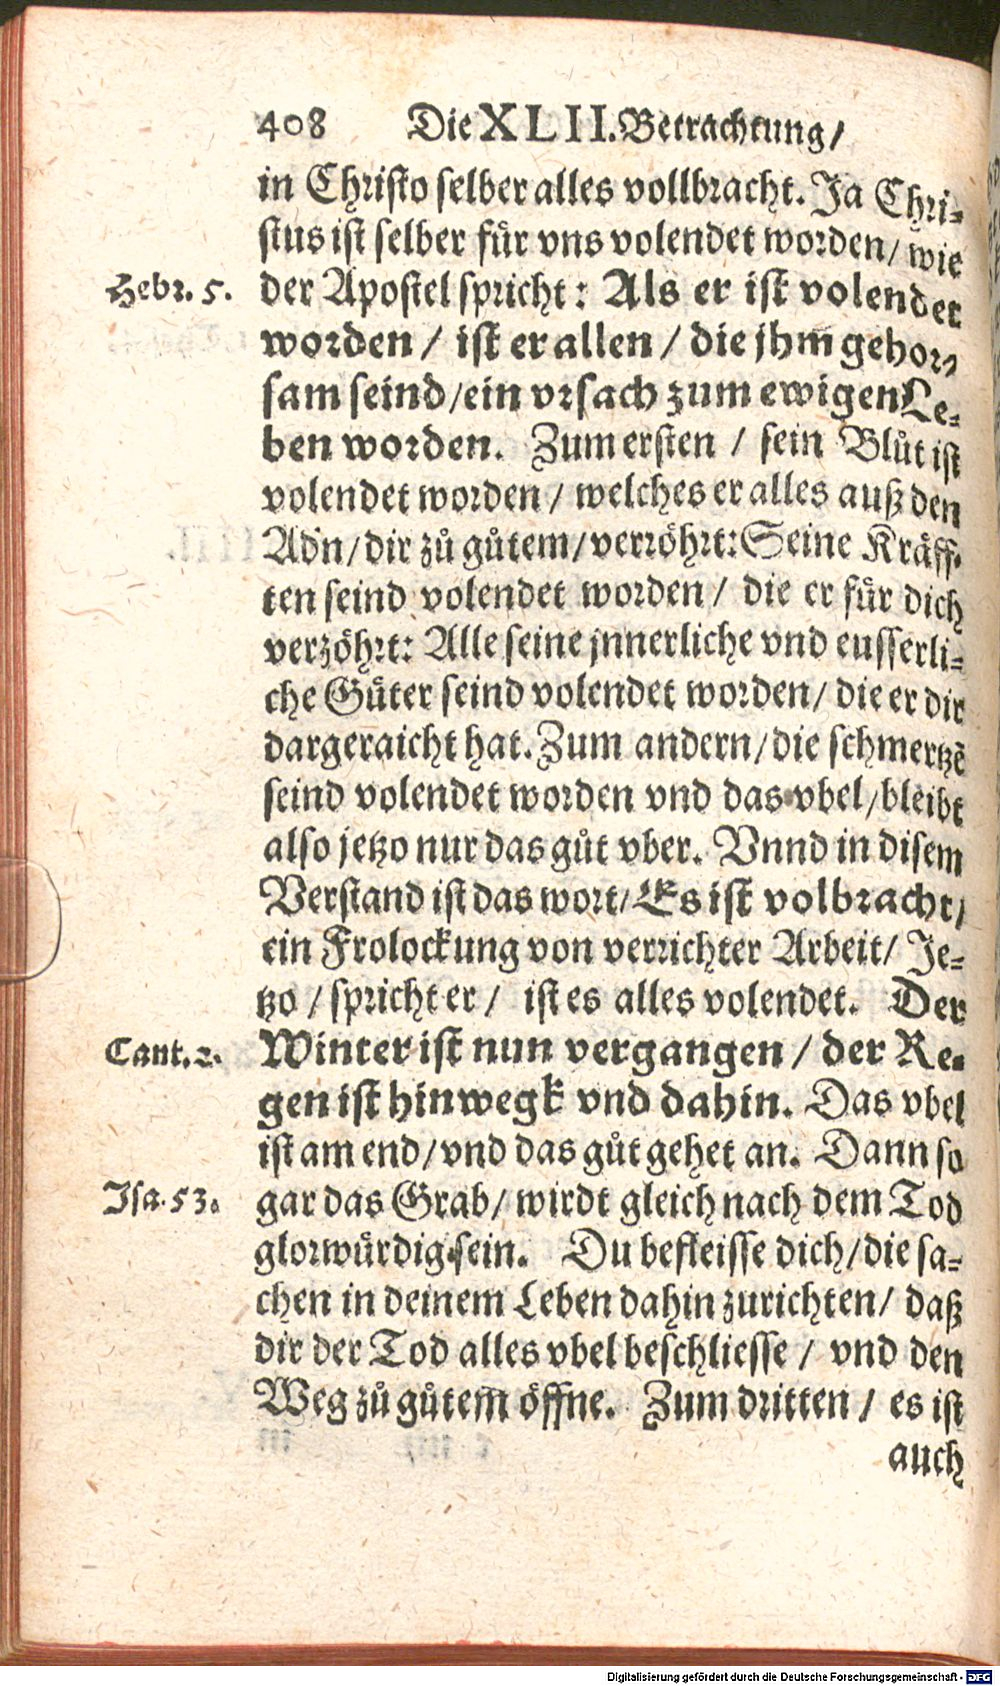 408 Die XLII. Betrachtung/
in Christo selber alles vollbracht. Ja Chri-
stus ist selber für vns volendet worden/ wie
Hebr. 5. der Apostel spricht: Als er ist volendet
worden / ist er allen / die jhm gehor-
sam seind/ein vrsach zum ewigen Le-
ben worden. Zum ersten / sein Blůt ist
volendet worden / welches er alles auß den
Adn/dir zů gůtem/verröhrt: Seine Kräff-
ten seind volendet worden / die er für dich
verzöhrt: Alle seine jnnerliche vnd eusserli-
che Güter seind volendet worden/ die er dir
dargeraicht hat. Zum andern/die schmertzē
seind volendet worden vnd das vbel/bleibt
also jetzo nur das gůt vber. Vnnd in disem
Verstand ist das wort/Es ist volbracht/
ein Frolockung von verrichter Arbeit/ Je-
tzo / spricht er / ist es alles volendet. Der
Cant. 2. Winter ist nun vergangen / der Re-
gen ist hinwegk vnd dahin. Das vbel
ist am end/vnd das gůt gehet an. Dann so
Isa. 53. gar das Grab/ wirdt gleich nach dem Tod
glorwürdig sein. Du befleisse dich/die sa-
chen in deinem Leben dahin zurichten/ daß
dir der Tod alles vbel beschliesse / vnd den
Weg zů gůtem öffne. Zum dritten / es ist
auch
Digitalisierung gefördert durch die Deutsche Forschungsgemeinschaft - DFG